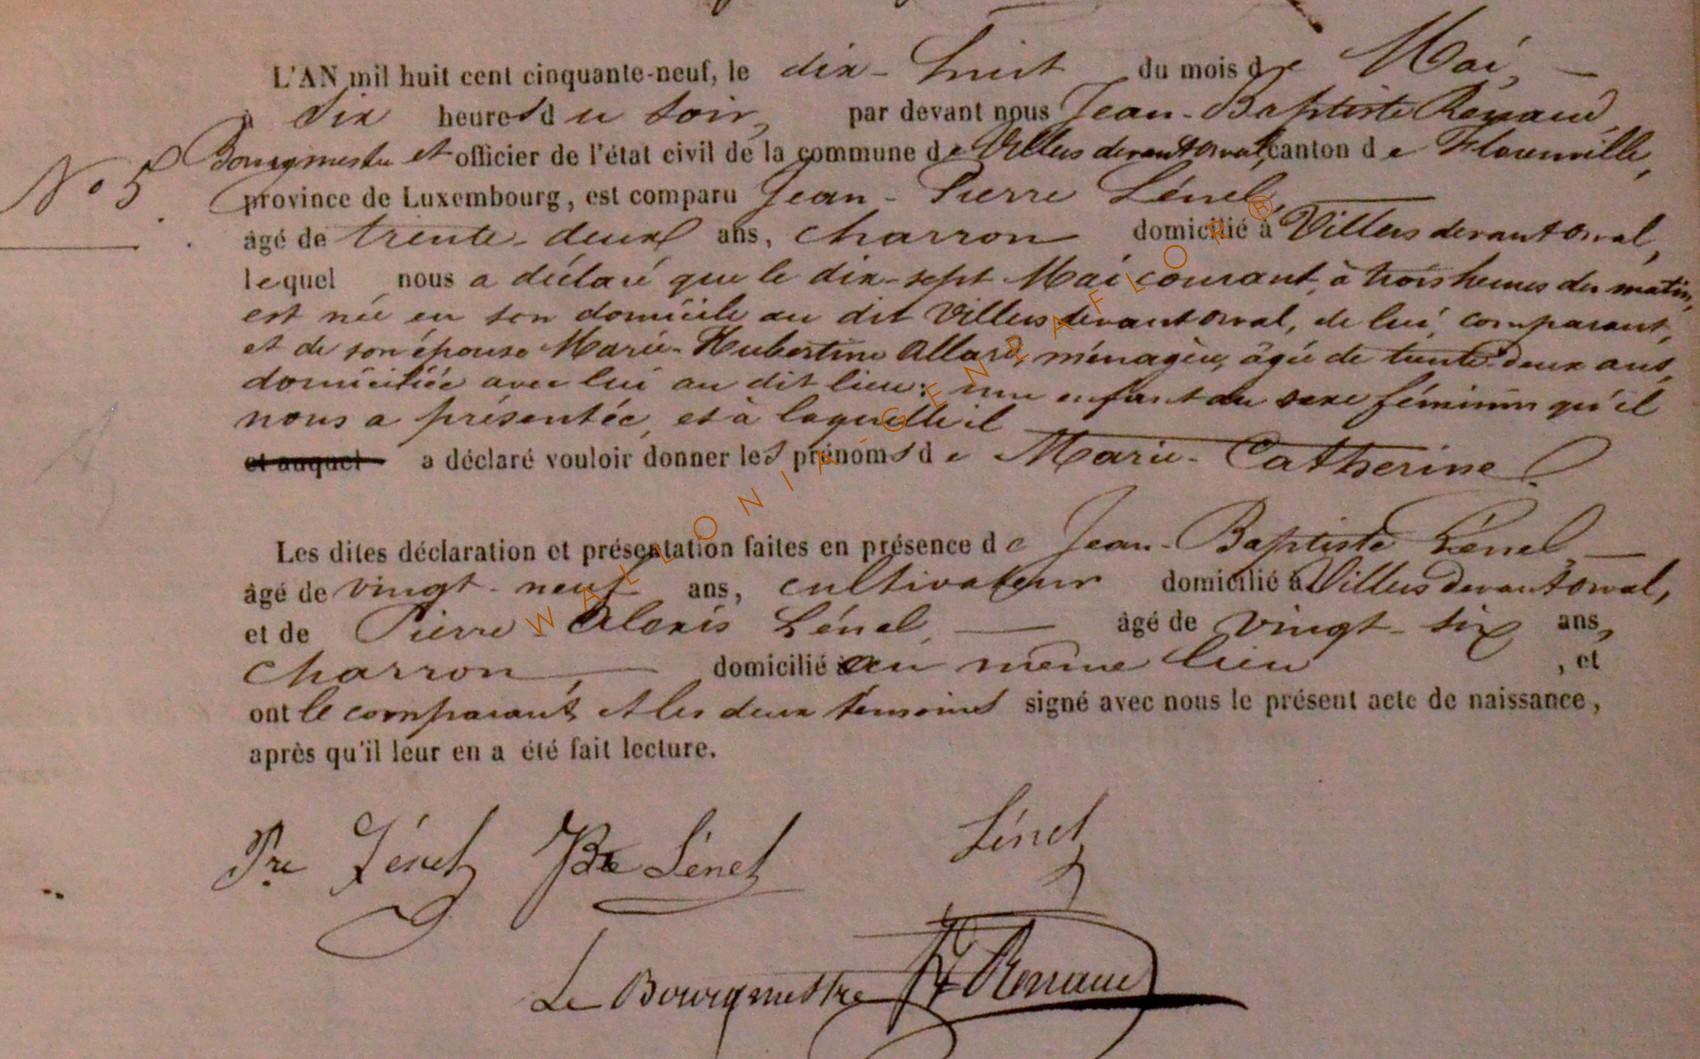 L'AN mil huit cent cinquante-neuf, le dix-huit du mois de Mai,
à dix heures du soir, par devant nous Jean-Baptiste Renaud,
Bourgmestre et officier de l'état civil de la commune de Villers devant Orval, canton de Florenville,
N° 5.
province de Luxembourg, est comparu Jean-Pierre Lénel,
âgé de trente-deux ans, charron domicilié à Villers devant Orval,
lequel nous a déclaré que le dix-sept Mai courant, à trois heures du matin,
est née en son domicile au dit Villers devant Orval, de lui, comparant,
et de son épouse Marie-Hubertine Allard, ménagère, âgée de trente-deux ans,
domiciliée avec lui au dit lieu : une enfant du sexe féminin qu'il
nous a présentée, et à laquelle il
et auquel a déclaré vouloir donner les prénoms de Marie-Catherine.
Les dites déclaration et présentation faites en présence de Jean-Baptiste Lénel
âgé de vingt-neuf ans, cultivateur domicilié à Villers devant Orval,
et de Pierre Alexis Lénel, âgé de vingt-six ans,
charron, domicilié au même lieu, et
ont le comparant et les deux témoins signé avec nous le présent acte de naissance,
après qu'il leur en a été fait lecture.
Pre Lénel JBte Lénel Lénel
Le Bourgmestre Renaud
WALLONIA-GENEAFLOR®